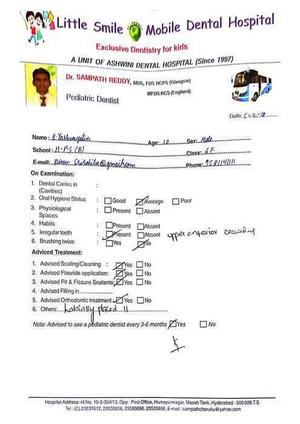 Little Smile Mobile Dental Hospital
Exclusive Dentistry for kids
A UNIT OF ASHWINI DENTAL HOSPITAL (Since 1997)
Dr. SAMPATH REDDY, MDS, FDS RCPS (Glasgow)
MFDS RCPS (England)
Pediatric Dentist
Date:
Name: Age: 10 Sex: Male
School: H.P.S (B) Class: 6F
E-mail: Phone:
On Examination:
1. Dental Caries in (Cavities) :
2. Oral Hygiene Status : Good Average Poor
3. Physiological Spaces : Present Absent
4. Habits : Present Absent
5. Irregular teeth : Present Absent upper anterior crowding
6. Brushing twice : Yes No
Adviced Treatment:
1. Advised Scaling/Cleaning : Yes No
2. Advised Flouride application: Yes No
3. Advised Pit & Fissure Sealants: Yes No
4. Advised Filling in
5. Advised Orthodontic treatment: Yes No
6. Others: placed 11
Note: Advised to see a pediatric dentist every 3-6 months Yes No
Hospital Address: H.No. 10-3-304/13, Opp. Post Office, Humayunnagar, Masab Tank, Hyderabad - 500 028.T.S.
Tel : (C) 23537612, 23535656, 23530690, 23535656, E-mail : sampathcheruku@yahoo.com